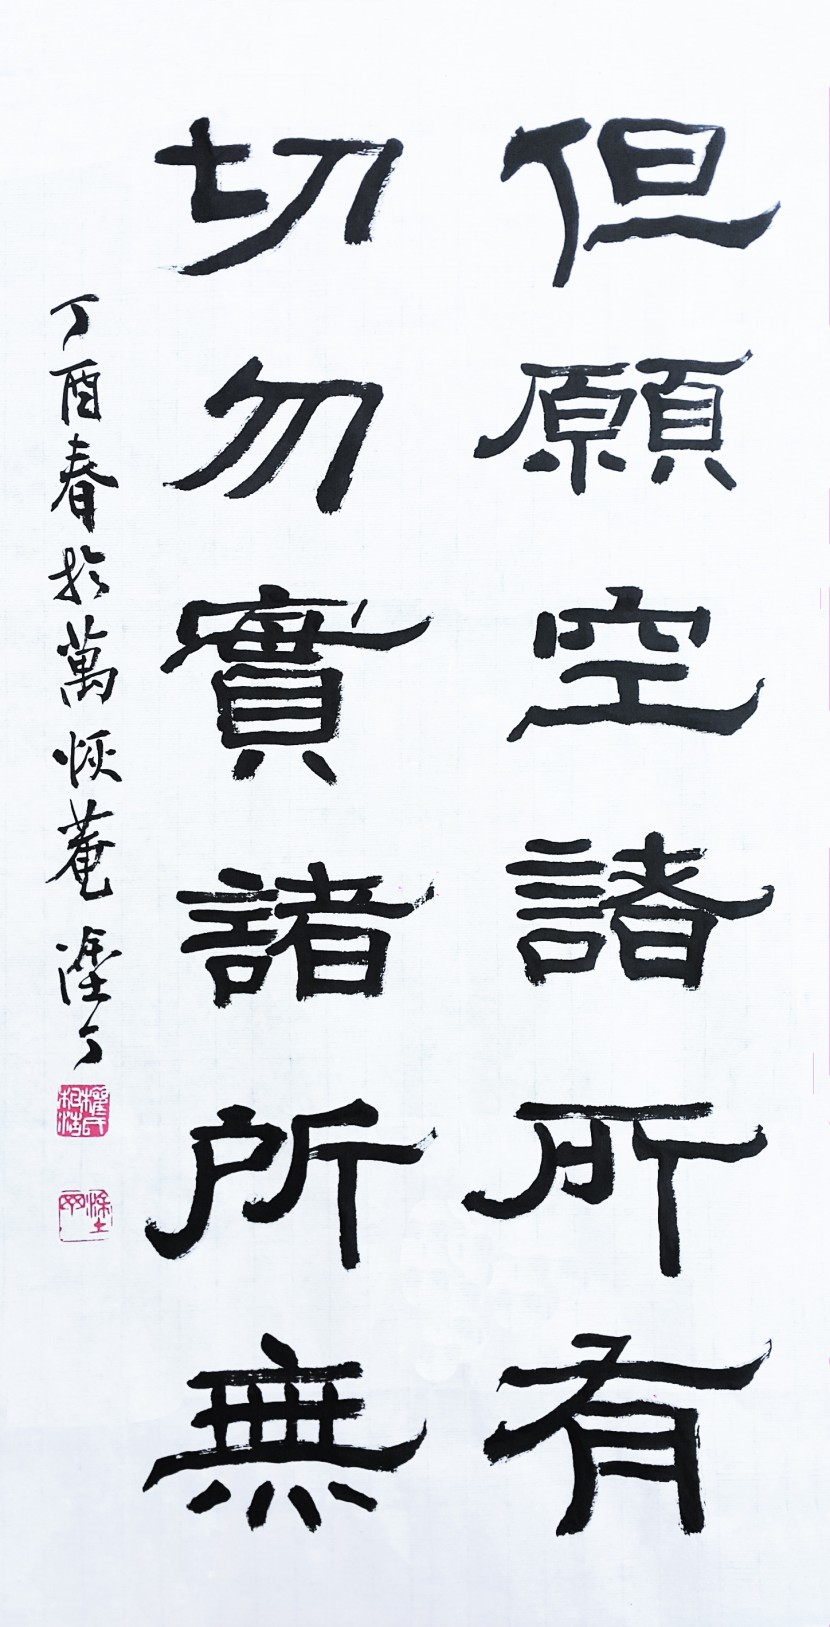 但願空諸所有
切勿實諸所無
丁酉春於萬恢菴塗丁